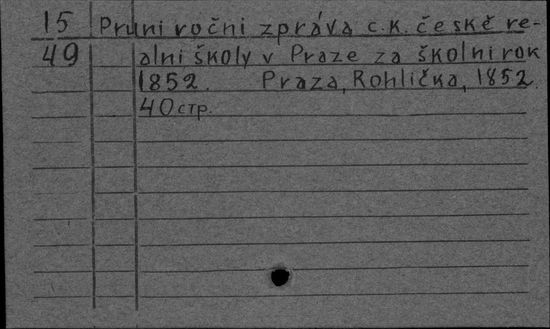 15 Pruni roční zpráva c.k. české re-
49 alni školy v Praze za školni rok
1852. Praza, Rohlička, 1852.
40 стр.